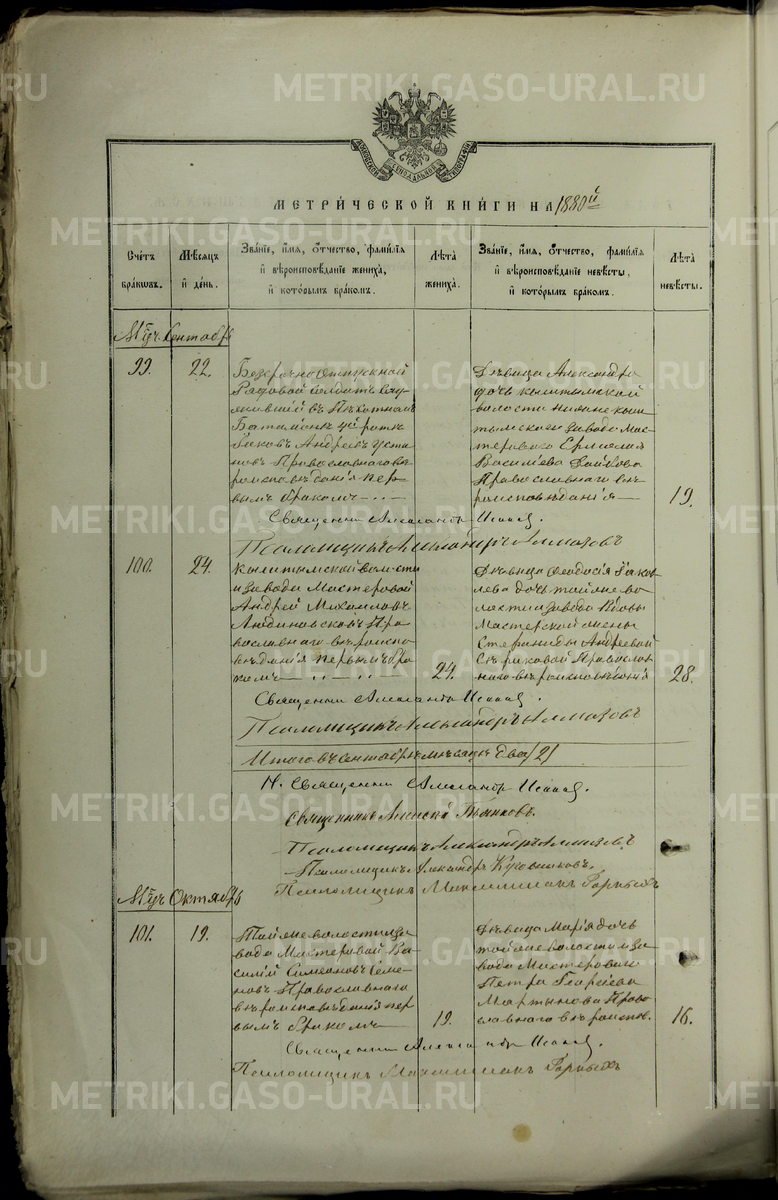 METRIKI.GASO-URAL.RU
МЕТРИ́ЧЕСКОЙ КНИ́ГИ НА 1880й
Сче́тъ бра́ковъ.
Мѣ́сяцъ й де́нь.
Зва́нїе, и́мя, о́тчество, фами́лїя
й вѣроисповѣ́данїе жениха̀,
й кото́рымъ бра́комъ.
Лѣ́та жениха̀.
Зва́нїе, и́мя, о́тчество, фами́лїя
й вѣроисповѣ́данїе невѣ́сты,
й кото́рымъ бра́комъ.
Лѣ́та невѣ́сты.
Мцъ Сентябрь
99.
22.
Безсрочно отпускной
Рядовой солдатъ слу
жившій въ Пѣхотномъ
Яковъ Андреевъ Усти
новъ Православнаго вѣ
роисповѣданія пер
вымъ бракомъ
Дѣвица Александра
дочь Кыштымской
волости Нижне Кыш
тымскаго завода Мас
тероваго
Васильева
Православнаго вѣ
роисповѣданія
19.
Священникъ Александръ
Псаломщикъ Александръ Алмазовъ
100.
24.
Кыштымской волости
и завода Мастеровой
Андрей Михаиловъ
Пра
вославнаго вѣроиспо
вѣданія первымъ бра
комъ
24.
Дѣвица Феодосія Яков
лева дочь той же во
лости и завода Вдовы
Мастерской жены
Андреевой
Православ
наго вѣроисповѣданія
28.
Священникъ Александръ
Псаломщикъ Александръ Алмазовъ
Итого въ сентябрѣ мѣсяцѣ два /2/
Священникъ Александръ
Священникъ Алексѣй
Псаломщикъ Александръ Алмазовъ
Псаломщикъ Александръ
Псаломщикъ Максимиліанъ
Мцъ Октябрь
101.
19.
Той же волости и за
вода Мастеровой Ва
силій Симеоновъ Семе
новъ Православнаго
вѣроисповѣданія пер
вымъ бракомъ
19.
Дѣвица Марія дочь
той же волости и за
вода Мастероваго
Петра Георгіева
Мартынова Право
славнаго вѣроиспов.
16.
Священникъ Александръ
Псаломщикъ Максимиліанъ